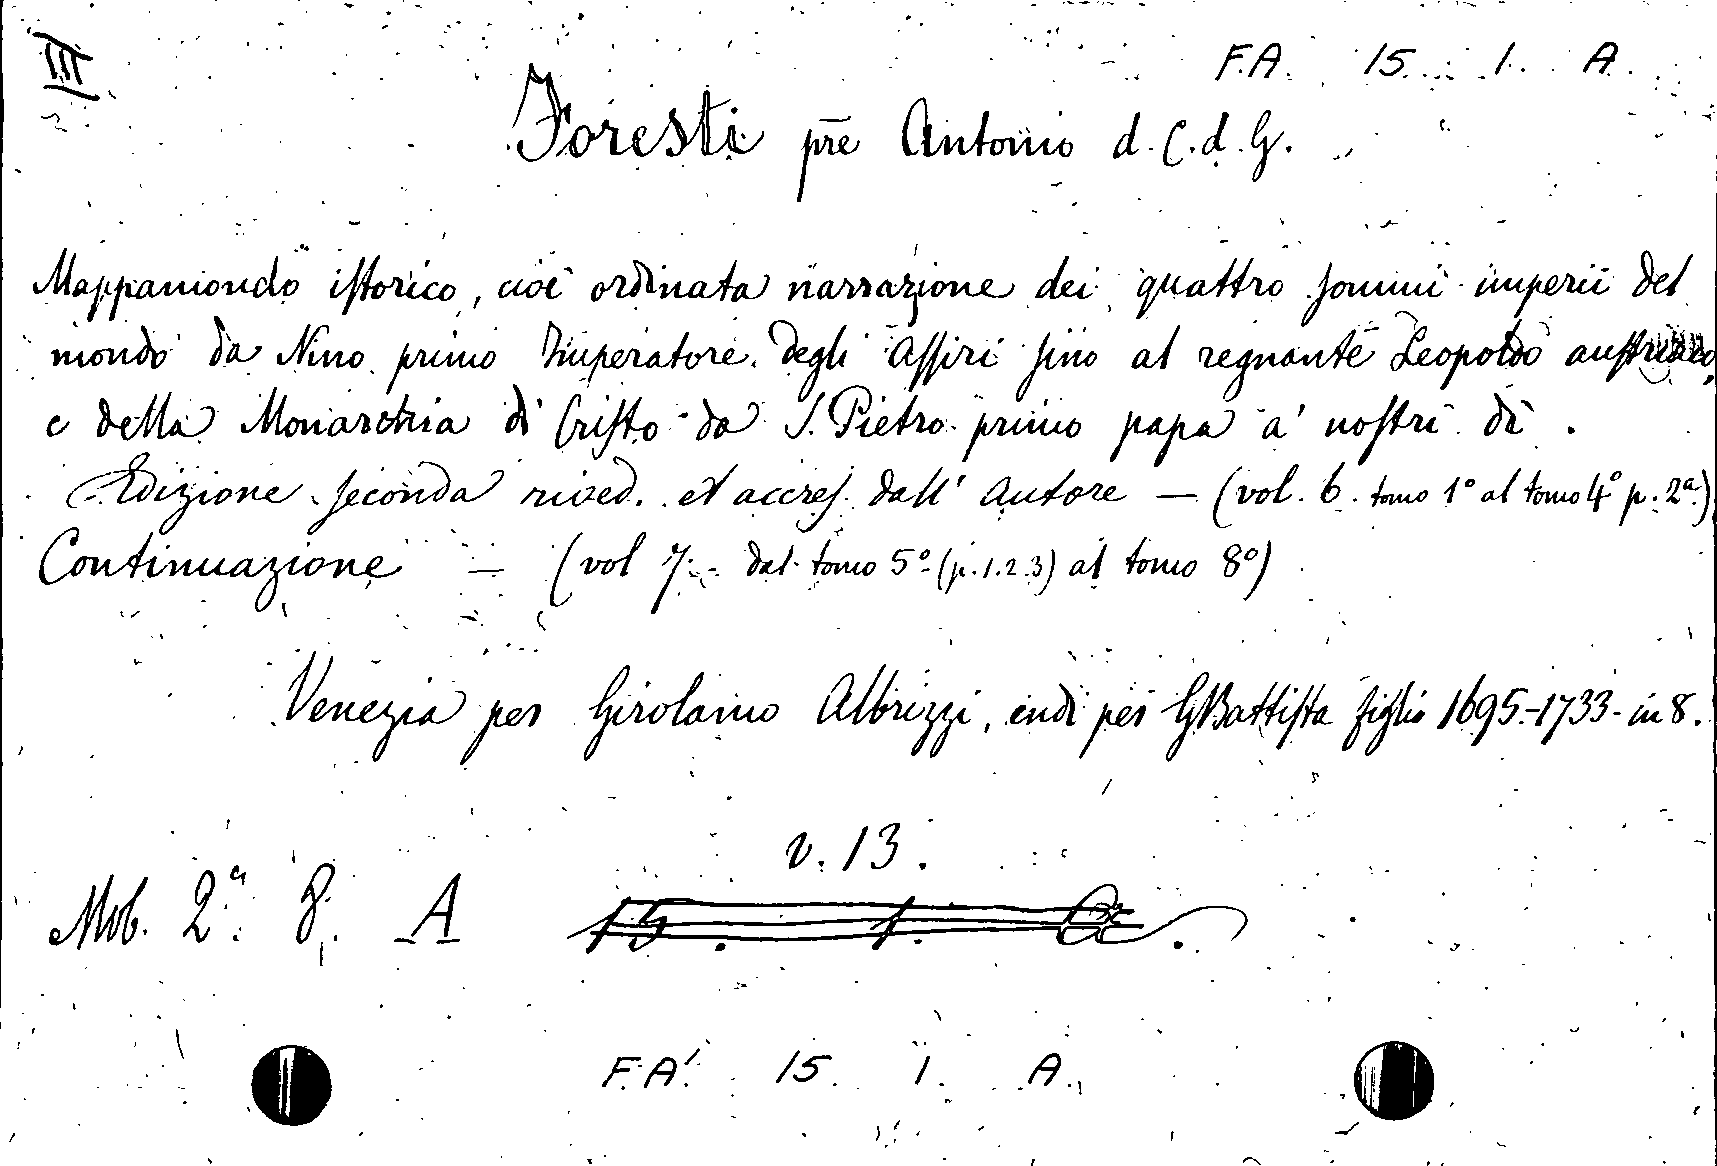 III
F.A. 15. 1. A.
Foresti pre Antonio d. C. d. G.
Mappamondo istorico, cioè ordinata narrazione dei quattro sommi imperii del
mondo da Nino primo Imperatore degli Assiri sino al regnante Leopoldo austriaco,
e della Monarchia di Cristo da S. Pietro primo papa a' nostri dì.
Edizione seconda rived. et accres. dall' autore — (vol. 6. tomo 1° al tomo 4° p. 2ª)
Continuazione — (vol 7. - dal tomo 5° (p. 1. 2. 3) al tomo 8°)
Venezia per Girolamo Albrizzi, indi per GBattista figlio 1695-1733 - in 8.
v. 13.
Mob. 2ª. 8. A 15. 1. A.
F.A. 15. 1. A.